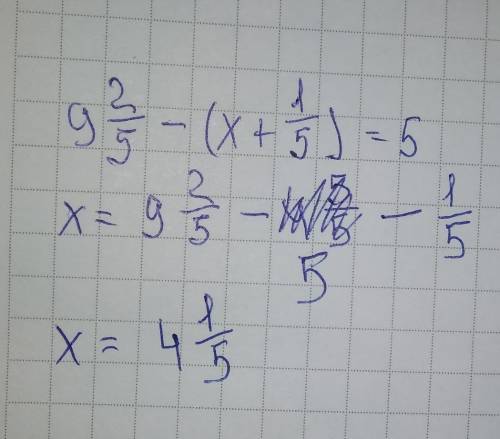 9 2/5 - (x + 1/5) = 5
x = 9 2/5 - 5 - 1/5
x = 4 1/5